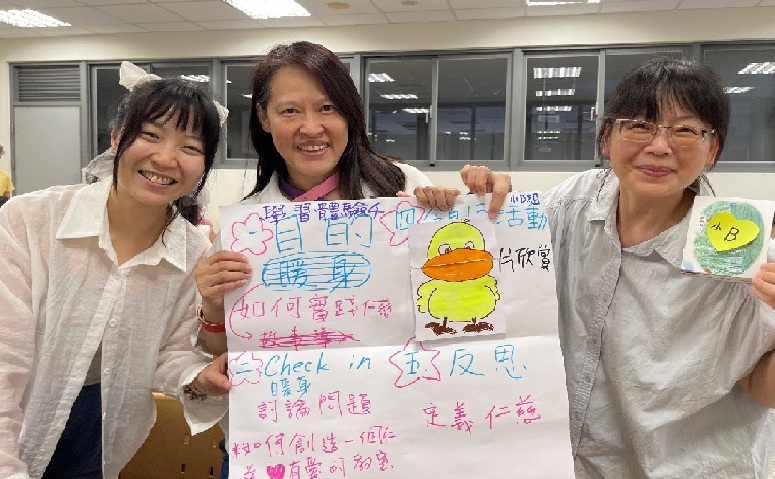 學習體驗4
小B組
一目的
暖身
如何實踐仁慈
二Check in
暖身
討論問題
如何創造一個仁
慈❤有愛的教室
四
活動
片欣賞
五反思
定義仁慈
小B